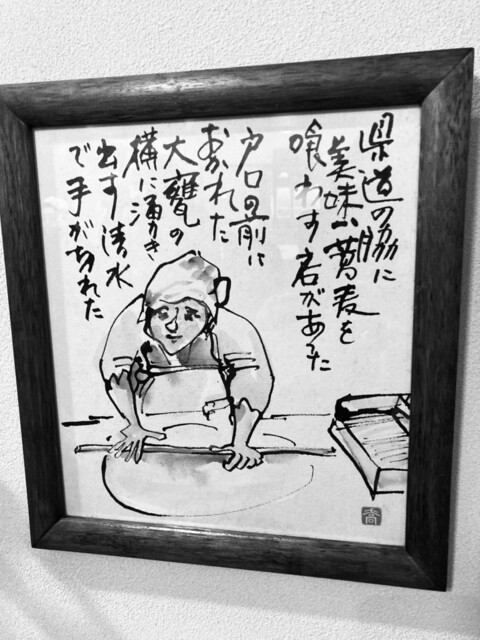 県道の脇に
美味い蕎麦を
喰わす店があった
戸口の前に
おかれた
大甕の
横に湧き
出す清水
で手が切れた
喬